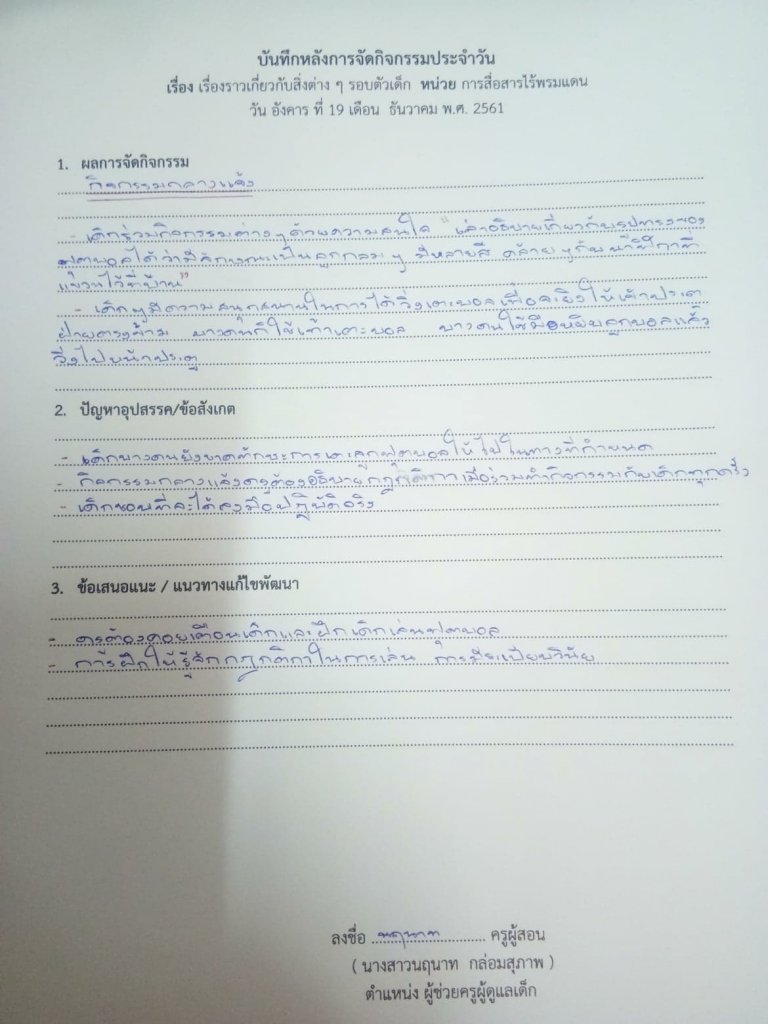 บันทึกหลังการจัดกิจกรรมประจำวัน
เรื่อง เรื่องราวเกี่ยวกับสิ่งต่าง ๆ รอบตัวเด็ก หน่วย การสื่อสารไร้พรมแดน
วัน อังคาร ที่ 19 เดือน ธันวาคม พ.ศ. 2561
1. ผลการจัดกิจกรรม
กิจกรรมกลางแจ้ง
- เด็กร่วมกิจกรรมต่างๆด้วยความสนใจ "เล่าอธิบายเกี่ยวกับรูปทรงของ
ฟุตบอลได้ว่ามีลักษณะเป็นลูกกลมๆ มีหลายสี คล้ายๆกับนาฬิกาที่
แขวนไว้ที่บ้าน"
- เด็กๆมีความสนุกสนานในการได้วิ่งเตะบอลเพื่อจะยิงให้เข้าประตู
ฝ่ายตรงข้าม บางคนก็ใช้เท้าเตะบอล บางคนใช้มือหยิบลูกบอลแล้ว
วิ่งไปหน้าประตู
2. ปัญหาอุปสรรค/ข้อสังเกต
- เด็กบางคนยังขาดทักษะการเตะลูกฟุตบอลให้ไปในทางที่กำหนด
- กิจกรรมกลางแจ้งครูต้องอธิบายกฎกติกาเมื่อร่วมทำกิจกรรมกับเด็กทุกครั้ง
- เด็กชอบที่จะได้ลงมือปฏิบัติจริง
3. ข้อเสนอแนะ / แนวทางแก้ไขพัฒนา
- ครูต้องคอยเตือนเด็กและฝึกเด็กเล่นฟุตบอล
- การฝึกให้รู้จักกฎกติกาในการเล่น การมีระเบียบวินัย
ลงชื่อ นฤนาท ครูผู้สอน
( นางสาวนฤนาท กล่อมสุภาพ )
ตำแหน่ง ผู้ช่วยครูผู้ดูแลเด็ก